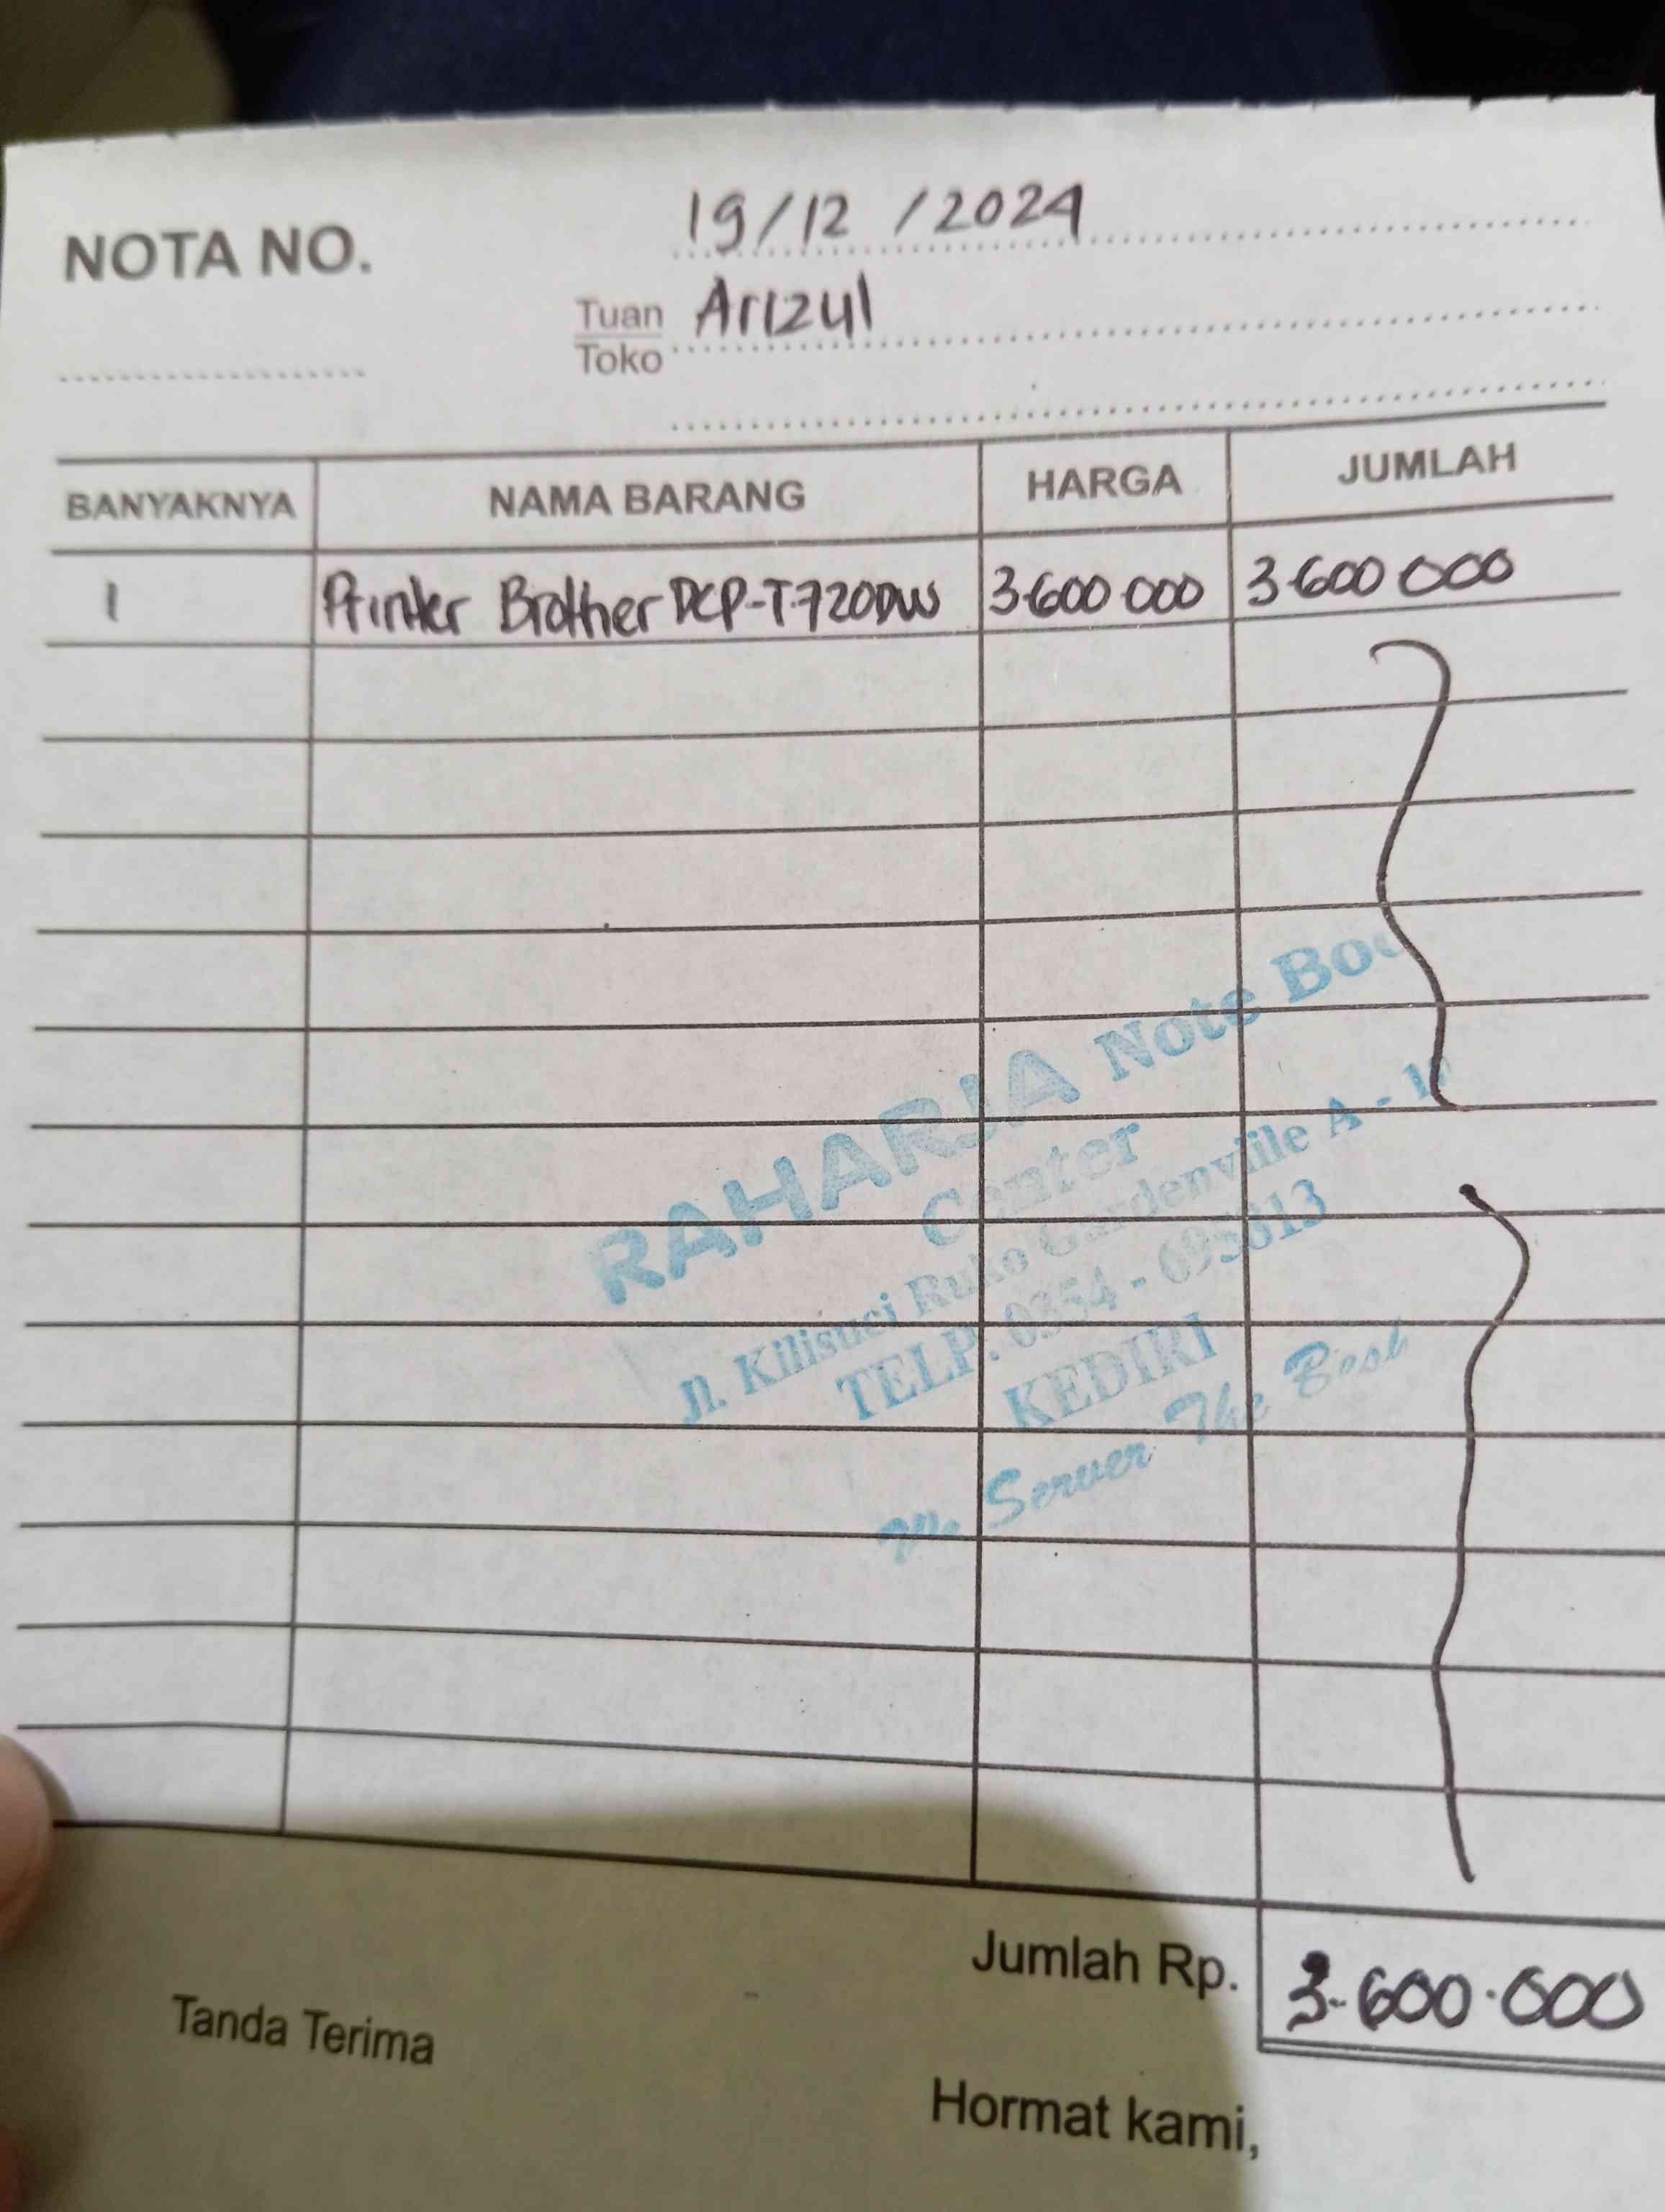 19/12/2024
NOTA NO.
Tuan Arizul
Toko
BANYAKNYA NAMA BARANG HARGA JUMLAH
1 Printer Brother DCP-T.720DW 3.600 000 3.600 000
RAHARJA Note
Center
Jl. Kilisuci Ruko Gardenville A -
TELP. 0354 -
KEDIRI
We Server The Best
Jumlah Rp. 3.600.000
Tanda Terima
Hormat kami,